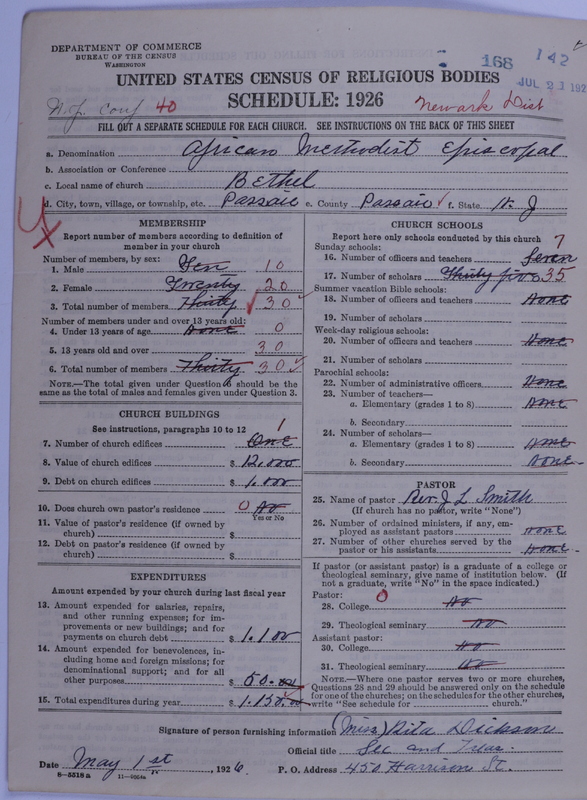 DEPARTMENT OF COMMERCE
BUREAU OF THE CENSUS
WASHINGTON
168 142
JUL 21 192
UNITED STATES CENSUS OF RELIGIOUS BODIES
SCHEDULE: 1926
N.J. Conf 40
Newark Dist
FILL OUT A SEPARATE SCHEDULE FOR EACH CHURCH. SEE INSTRUCTIONS ON THE BACK OF THIS SHEET
a. Denomination African Methodist Episcopal
b. Association or Conference
c. Local name of church Bethel
d. City, town, village, or township, etc. Passaic e. County Passaic f. State N. J
MEMBERSHIP
Report number of members according to definition of member in your church
Number of members, by sex:
1. Male Ten 10
2. Female Twenty 20
3. Total number of members Thirty 30
Number of members under and over 13 years old:
4. Under 13 years of age None 0
5. 13 years old and over 30
6. Total number of members Thirty 30
NOTE.—The total given under Question 6 should be the same as the total of males and females given under Question 3.
CHURCH BUILDINGS
See instructions, paragraphs 10 to 12
7. Number of church edifices One 1
8. Value of church edifices $ 12,000
9. Debt on church edifices $ 1.000
10. Does church own pastor's residence 0 No
Yes or No
11. Value of pastor's residence (if owned by church) $
12. Debt on pastor's residence (if owned by church) $
EXPENDITURES
Amount expended by your church during last fiscal year
13. Amount expended for salaries, repairs, and other running expenses; for improvements or new buildings; and for payments on church debt $ 1.100
14. Amount expended for benevolences, including home and foreign missions; for denominational support; and for all other purposes $ 50.00
15. Total expenditures during year $ 1.150.00
CHURCH SCHOOLS
Report here only schools conducted by this church
Sunday schools:
16. Number of officers and teachers Seven 7
17. Number of scholars Thirty five 35
Summer vacation Bible schools:
18. Number of officers and teachers None
19. Number of scholars
Week-day religious schools:
20. Number of officers and teachers None
21. Number of scholars
Parochial schools:
22. Number of administrative officers None
23. Number of teachers—
a. Elementary (grades 1 to 8) None
b. Secondary
24. Number of scholars—
a. Elementary (grades 1 to 8) None
b. Secondary None
PASTOR
25. Name of pastor Rev. J L Smith
(If church has no pastor, write "None")
26. Number of ordained ministers, if any, employed as assistant pastors None
27. Number of other churches served by the pastor or his assistants None
If pastor (or assistant pastor) is a graduate of a college or theological seminary, give name of institution below. (If not a graduate, write "No" in the space indicated.)
Pastor: 0
28. College No
29. Theological seminary No
Assistant pastor:
30. College No
31. Theological seminary No
NOTE.—Where one pastor serves two or more churches, Questions 28 and 29 should be answered only on the schedule for one of the churches; on the schedules for the other churches, write "See schedule for church."
Signature of person furnishing information (Miss) Rita Dickson
Official title Sec and Treas.
Date May 1st, 1926 P. O. Address 450 Harrison St.
8—5518 a